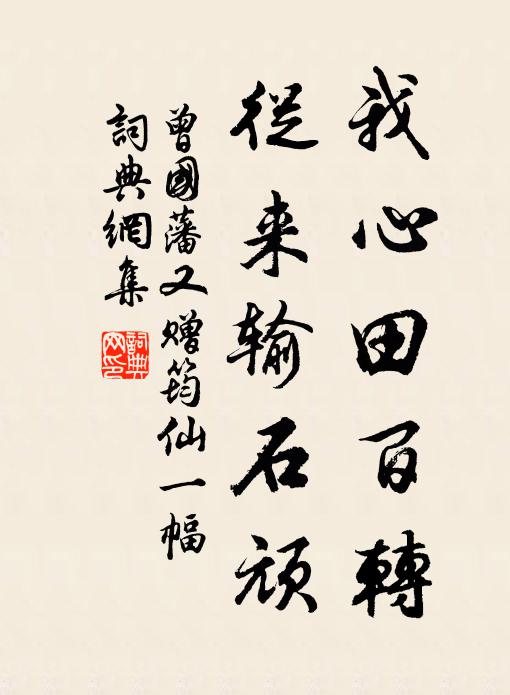 我心田百轉
從来输石頑
曾國藩又赠筠仙一幅
詞典網集
詞典
网印